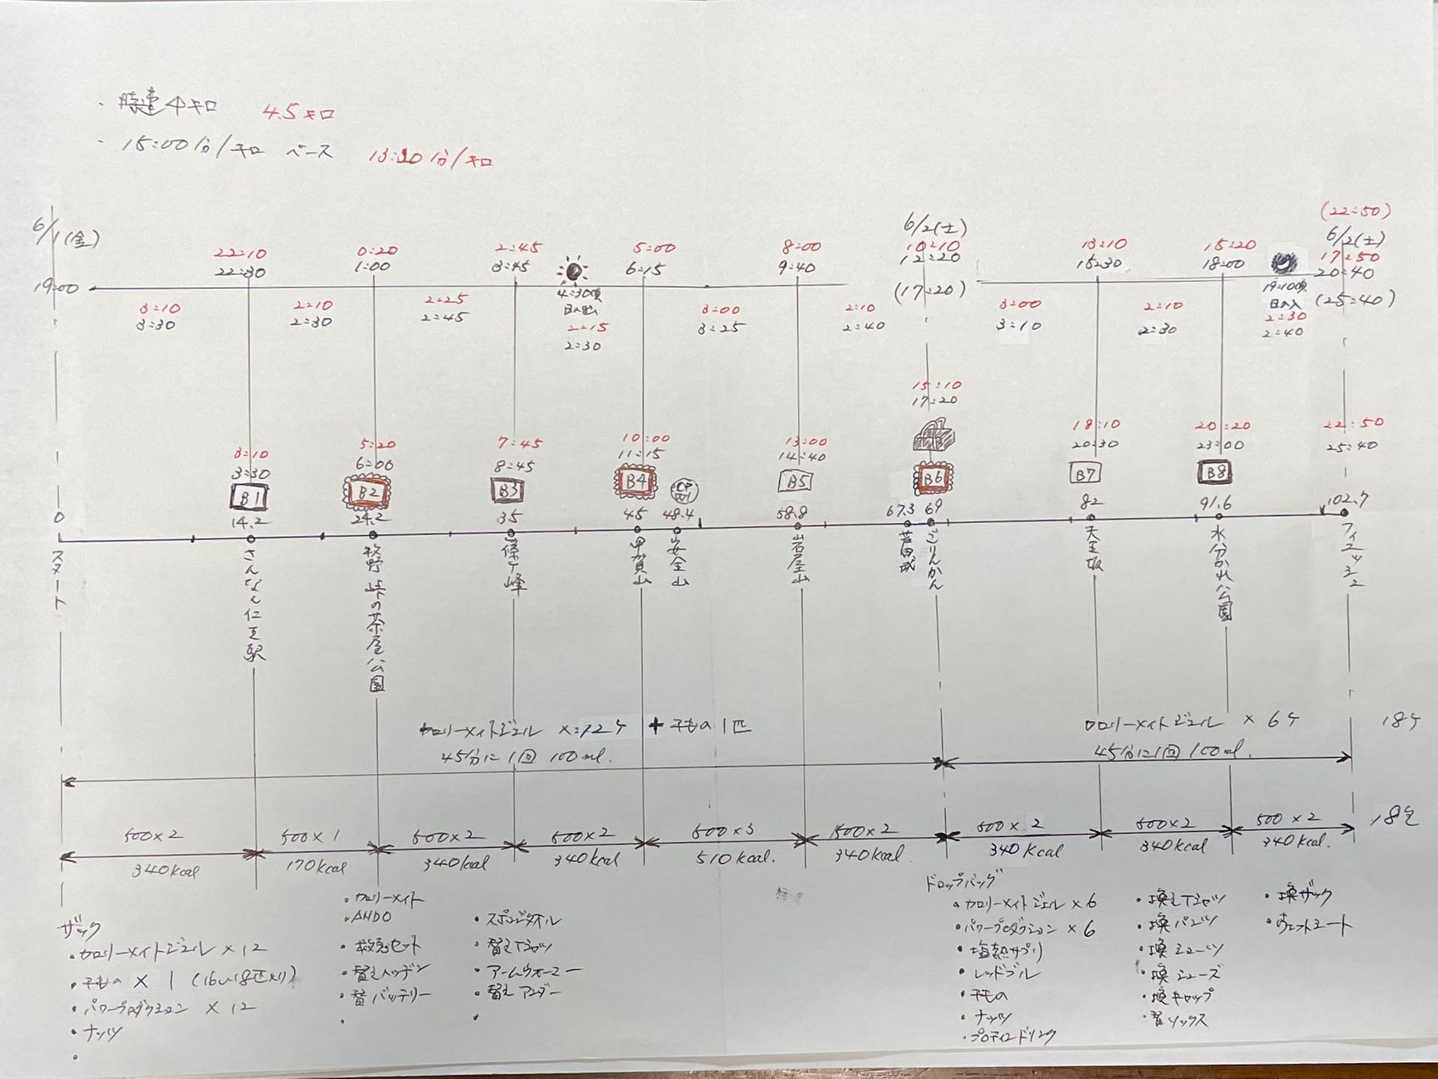 ・時速4キロ 4.5キロ
・15:00分/キロ ペース 13:20分/キロ
6/1(金)
19:00
22:10
22:30
0:20
1:00
2:45
3:45
4:30頃
日の出
5:00
6:15
8:00
9:40
6/2(土)
10:10
12:20
(17:20)
13:10
15:30
15:20
18:00
19:10頃
日の入
(22:50)
6/2(土)
17:50
20:40
(25:40)
3:10
3:30
2:10
2:30
2:25
2:45
2:15
2:30
3:00
3:25
2:10
2:40
3:00
3:10
2:10
2:30
2:30
2:40
3:10
3:30
B1
14.2
5:20
6:00
B2
24.2
7:45
8:45
B3
35
10:00
11:15
B4
45
48.4
13:00
14:40
B5
58.8
15:10
17:20
B6
67.3 69
18:10
20:30
B7
82
20:20
23:00
B8
91.6
22:50
25:40
102.7
0
スタート
さんなん仁王駅
峠の茶屋公園
篠ヶ峰
甲賀山
安全山
岩屋山
芦田城
ごりんかん
天王坂
水分かれ公園
フィニッシュ
カロリーメイトジェル ×12ケ + 干もの1匹
45分に1回 100ml.
カロリーメイトジェル × 6ケ
45分に1回 100ml.
18ケ
500×2
340kcal
500×1
170kcal
500×2
340kcal
500×2
340kcal
500×3
510kcal.
500×2
340kcal.
500×2
340kcal
500×2
340kcal
500×2
340kcal.
ザック
・カロリーメイトジェル × 12
・干もの × 1
・パワープロダクション × 12
・ナッツ
・カロリーメイト
・救急セット
・替えハンデン
・替バッテリー
・スポンジタオル
・替えTシャツ
・アームウォーマー
・替えアンダー
ドロップバッグ
・カロリーメイトジェル × 6
・パワープロダクション × 6
・塩熱サプリ
・レッドブル
・干もの
・ナッツ
・プロテインドリンク
・換えTシャツ
・換パンツ
・換シューズ
・換キャップ
・替ソックス
・換ザック
・ウェットシート